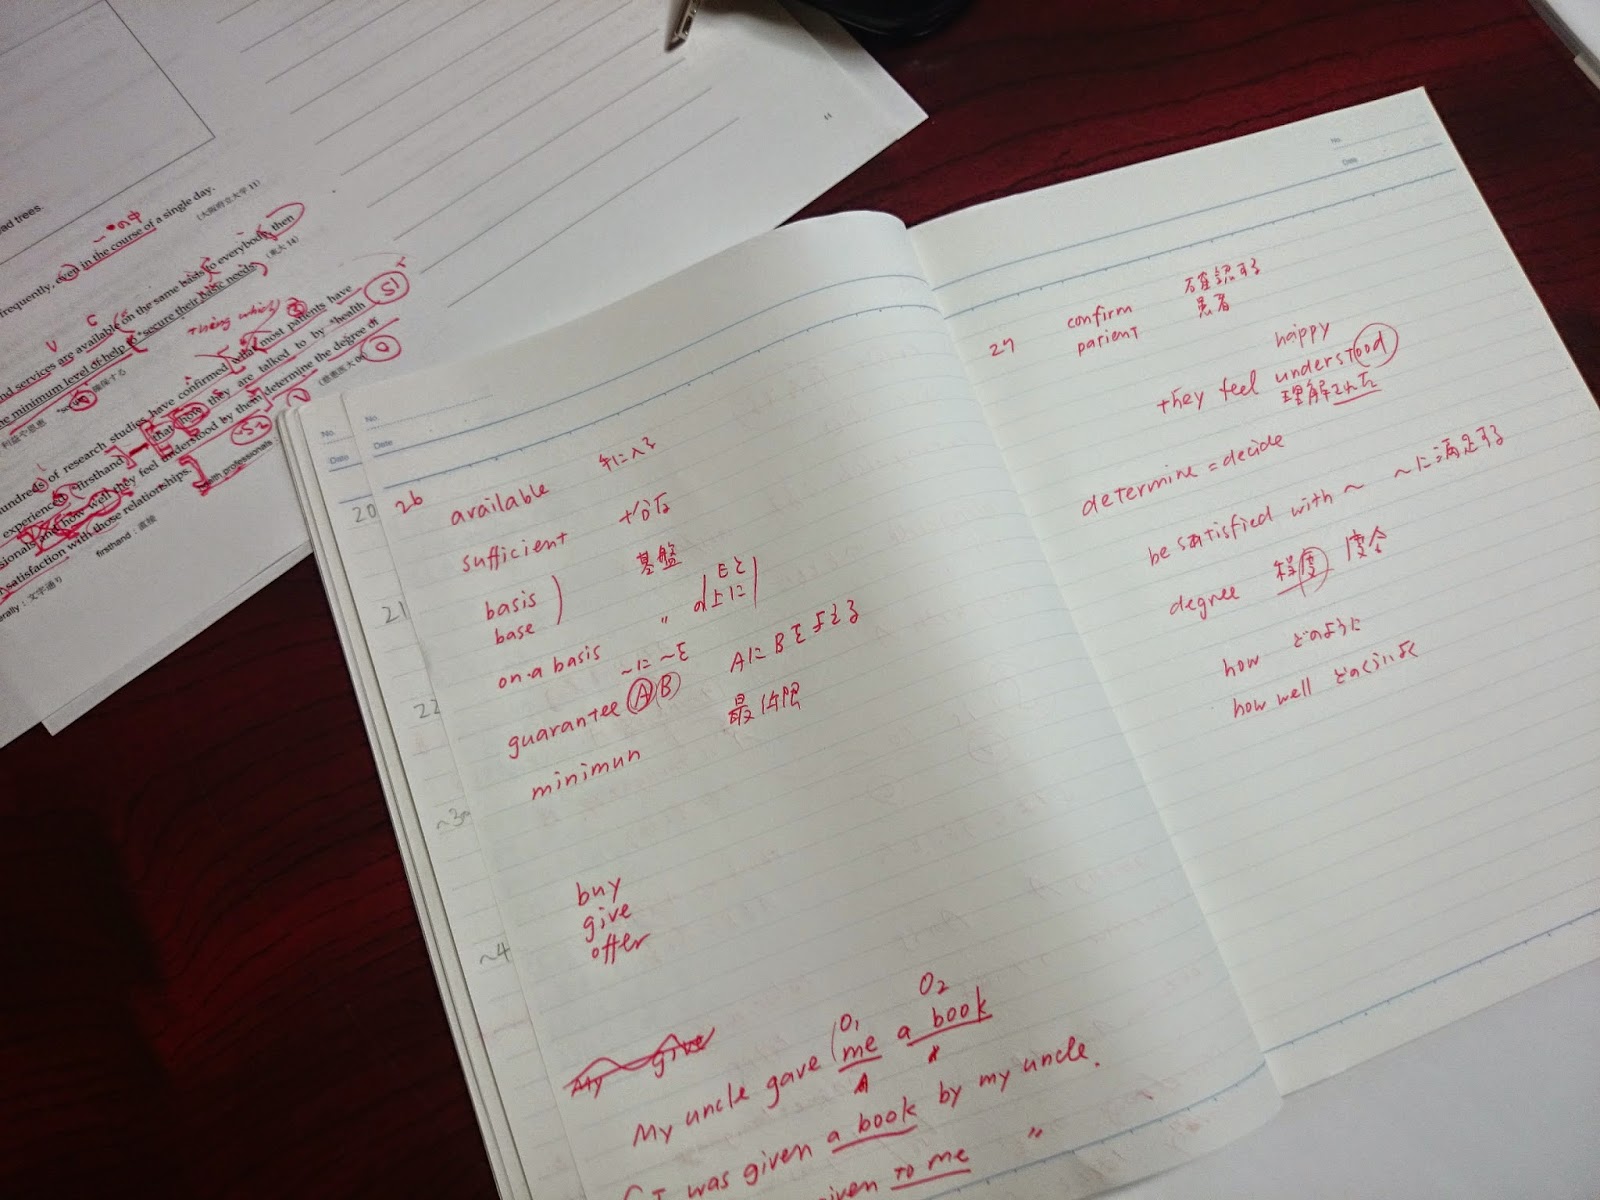 ad trees.
frequently, even in the course of a single day.
(大阪府立大学 11)
~の中
nd services are available on the same basis to everybody, then
e minimum level of help to *secure their basic needs.
V
C
利益や恩恵
thing which
S1
undreds of research studies have confirmed what most patients have
experienced *firsthand
that how they are talked to by *health
sionals and how well they feel understood by them determine the degree of
satisfaction with those relationships.
health professionals :
erally : 文字通り
firsthand : 直接
No.
Date
No.
Date
20
21
22
~3
~4
26
available 手に入る
sufficient 十分な
basis 基盤
base
on a basis 〃 の もと 上に
guarantee A B ~に~を AにBを与える
minimun 最低限
buy
give
offer
My give
O1 O2
My uncle gave me a book
I was given a book by my uncle.
given to me 〃
No.
Date
27
confirm 確認する
parient 患者
happy
they feel understood
理解された
determine = decide
be satisfied with ~ ~に満足する
degree 程度 度合
how どのように
how well どのくらいよく